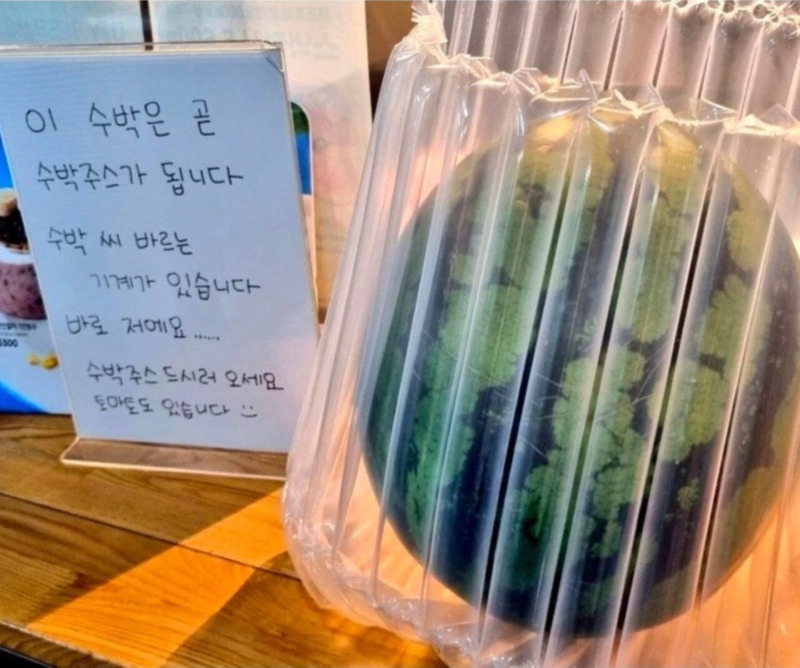 이 수박은 곧
수박주스가 됩니다
수박 씨 바르는
기계가 있습니다
바로 저예요 .....
수박주스 드시러 오세요
토마토도 있습니다 :)